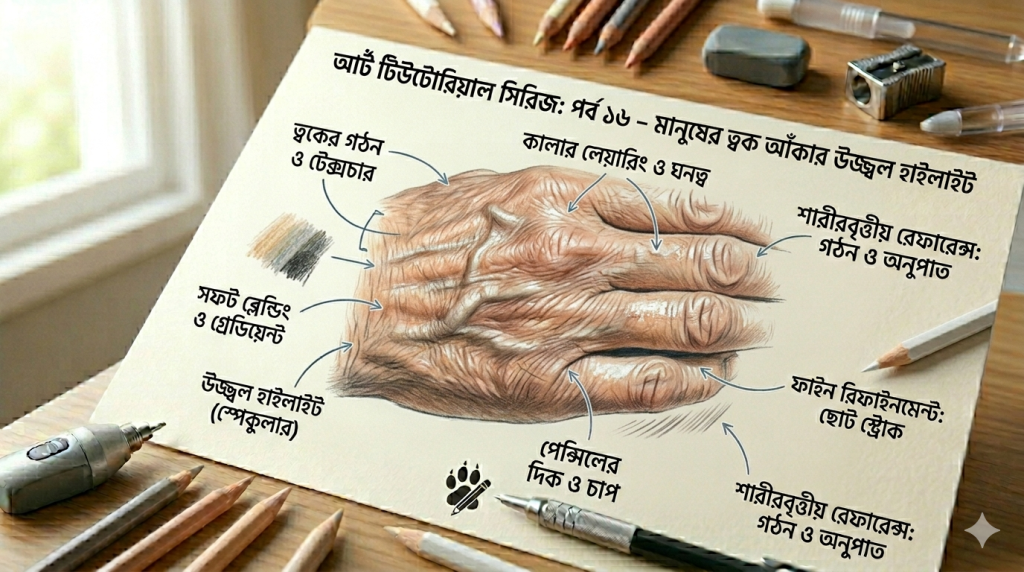 আর্ট টিউটোরিয়াল সিরিজ: পর্ব ১৬ – মানুষের ত্বক আঁকার উজ্জ্বল হাইলাইট
ত্বকের গঠন
ও টেক্সচার
কালার লেয়ারিং ও ঘনত্ব
শারীরবৃত্তীয় রেফারেন্স:
গঠন ও অনুপাত
সফট ব্লেন্ডিং
ও গ্রেডিয়েন্ট
উজ্জ্বল হাইলাইট
(স্পেকুলার)
ফাইন রিফাইনমেন্ট:
ছোট স্ট্রোক
পেন্সিলের
দিক ও চাপ
শারীরবৃত্তীয় রেফারেন্স:
গঠন ও অনুপাত